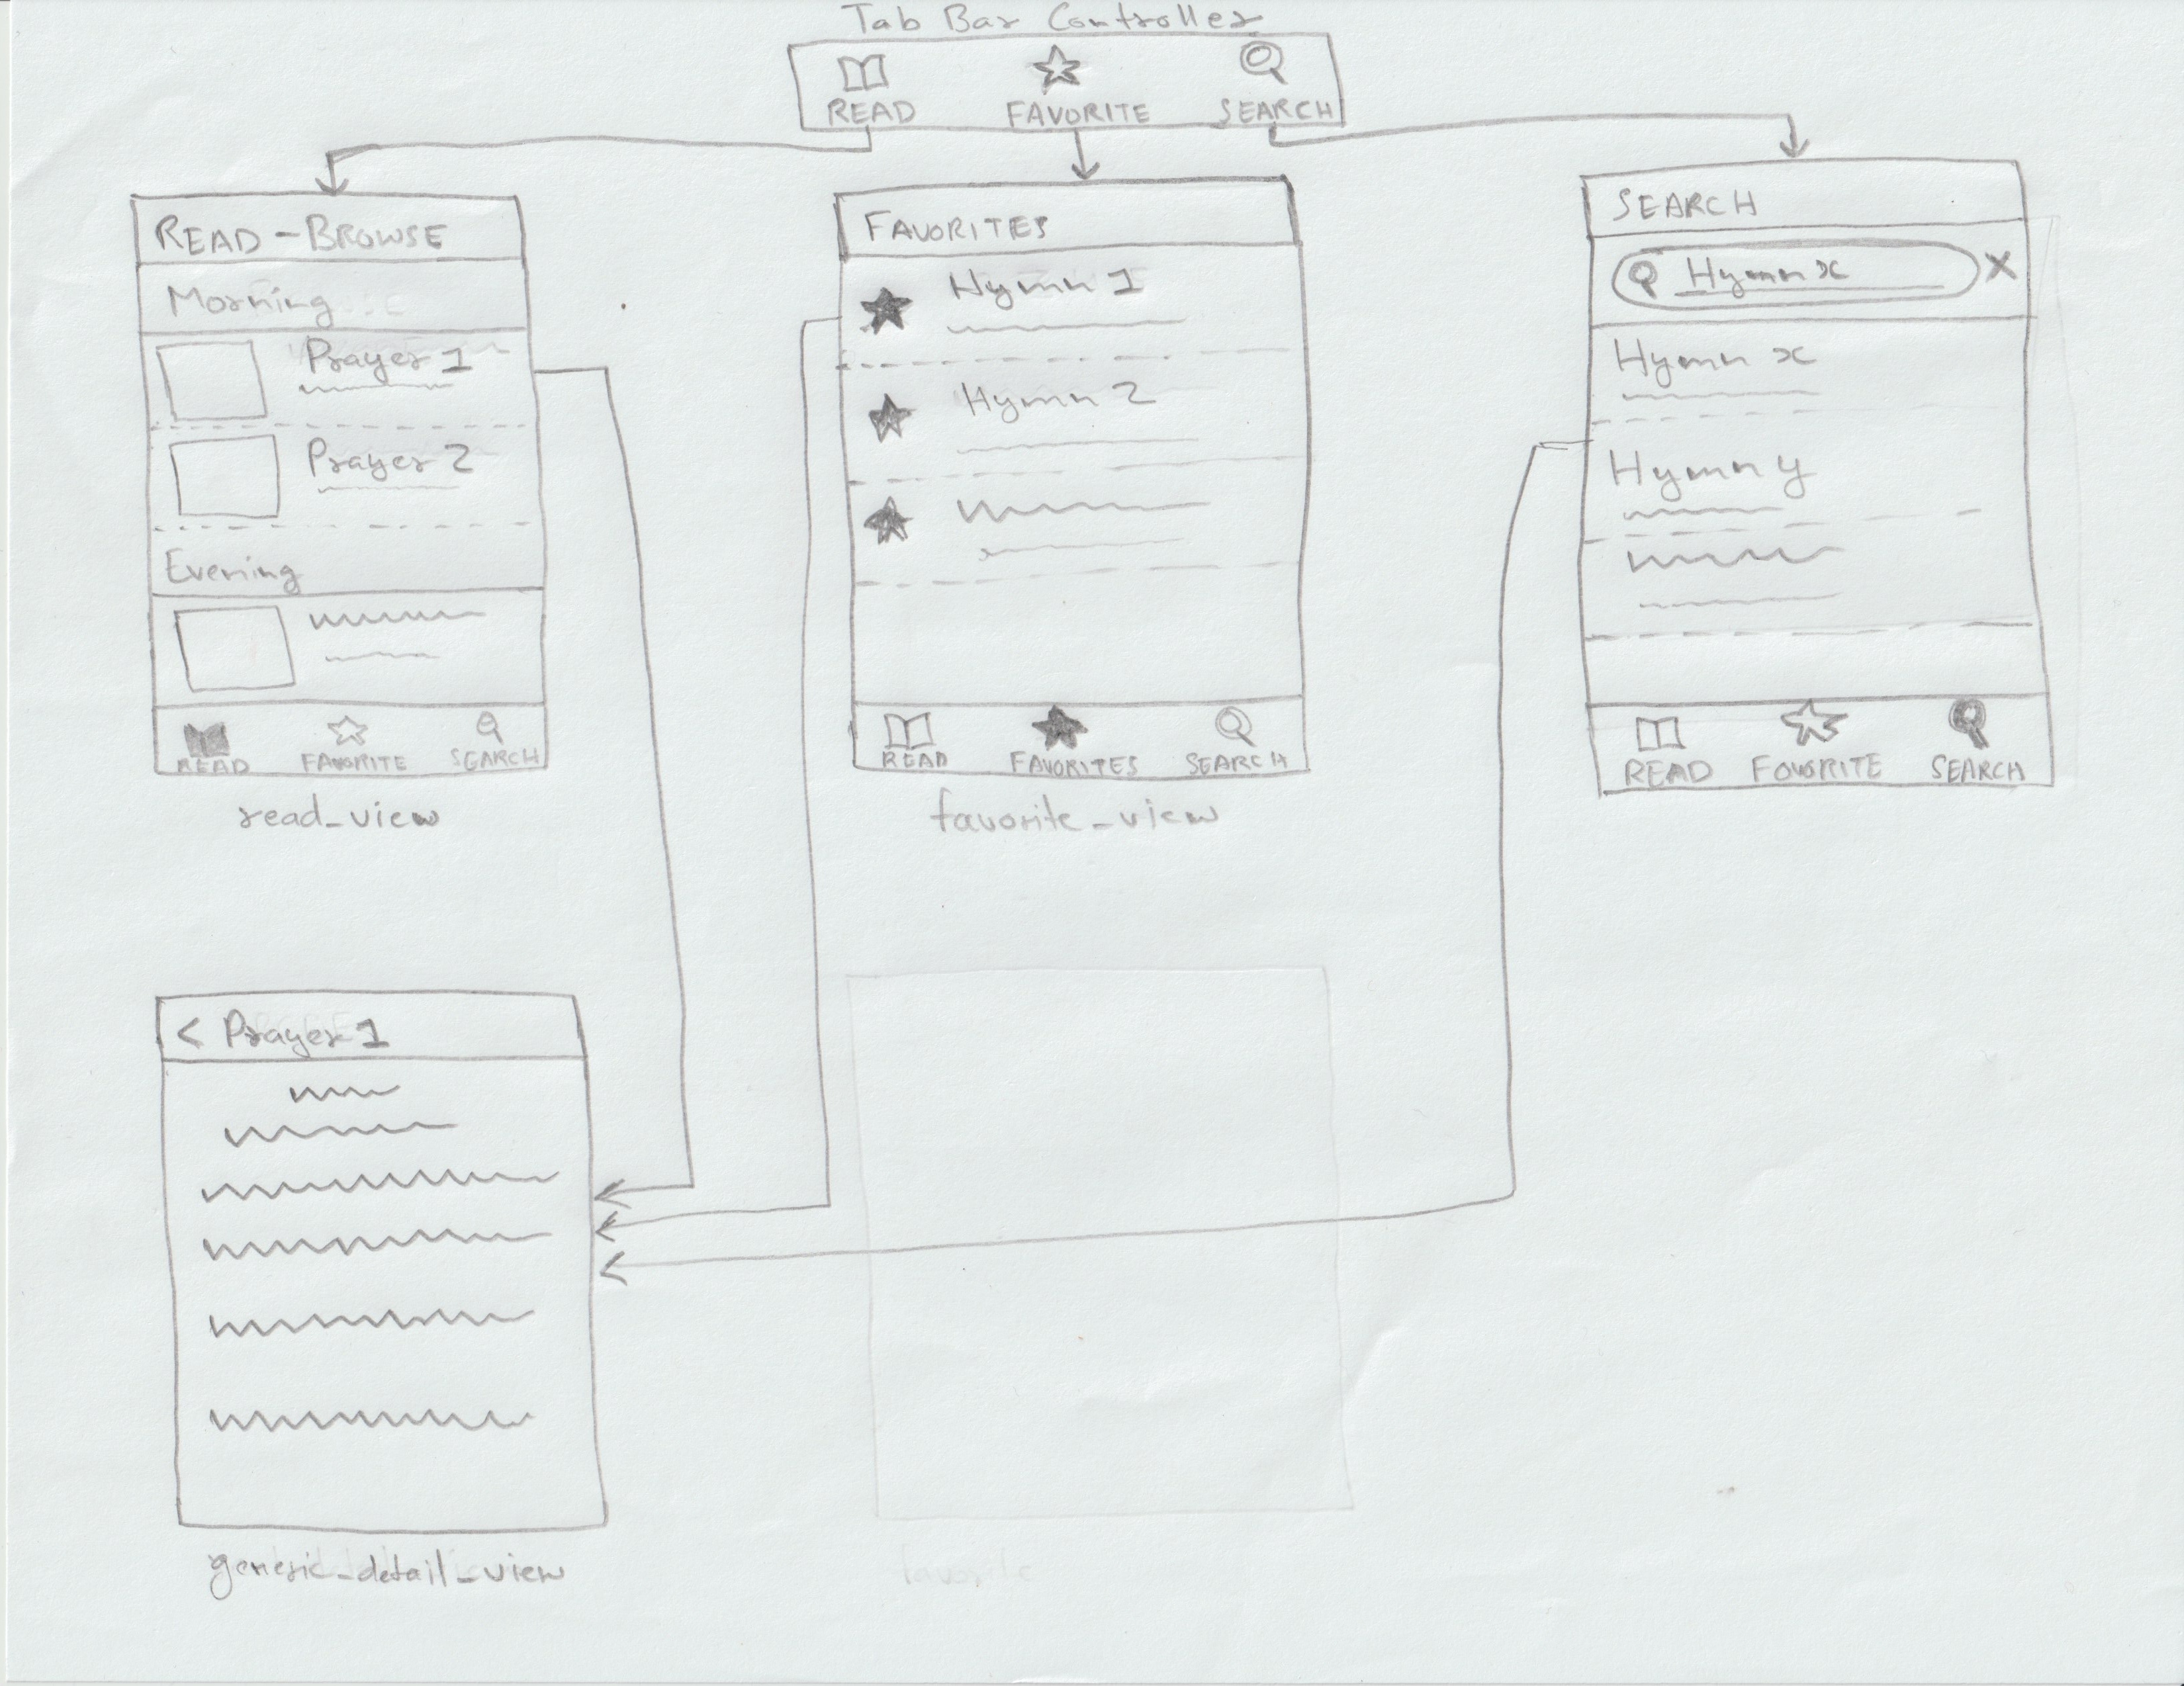 Tab Bar Controller
READ FAVORITE SEARCH
READ - BROWSE
Morning
Prayer 1
Prayer 2
Evening
READ FAVORITE SEARCH
read_view
FAVORITES
Hymn 1
Hymn 2
READ FAVORITES SEARCH
favorite_view
SEARCH
Hymn x X
Hymn x
Hymn y
READ FOVORITE SEARCH
< Prayer 1
generic_detail_view
favorite